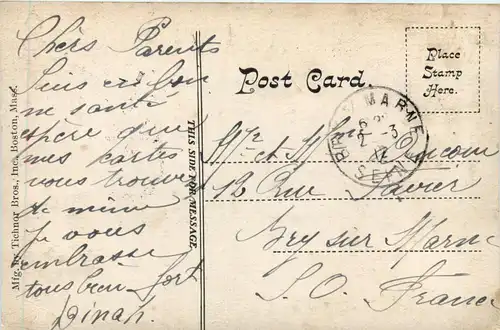 Chers Parents
Suis en bonne santé
espère que
mes cartes
vous trouve
de même
Je vous
embrasse
tous bien fort
Dinah.
THIS SIDE FOR MESSAGE
Mfg. by Tichnor Bros., Inc., Boston, Mass.
Post Card.
Place
Stamp
Here.
BRY S/ MARNE
SEINE
Mr et Mme
12 Rue
Bry sur Marne
S. O. France